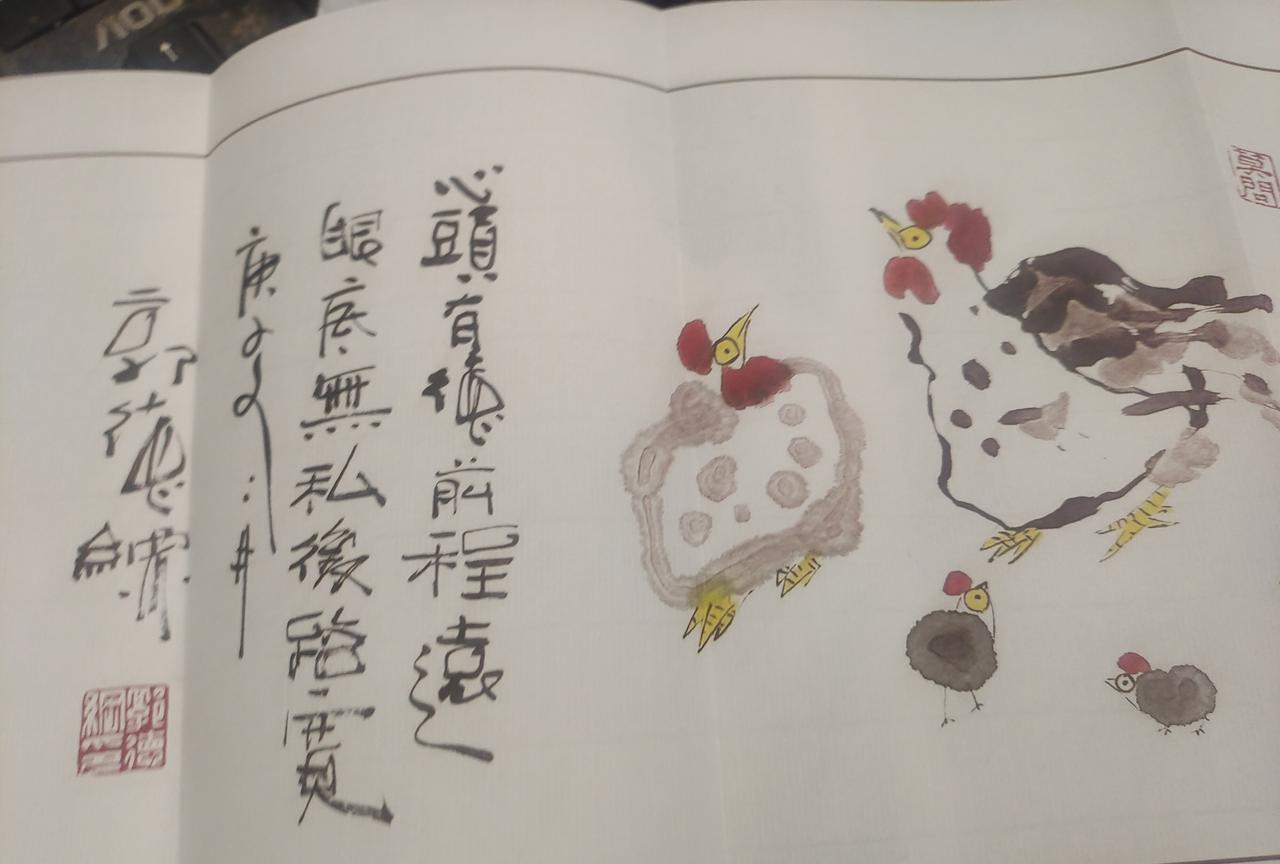 心頭有德前程遠
眼底無私後路寬
庚子
郭德綱
郭德綱印
AOC